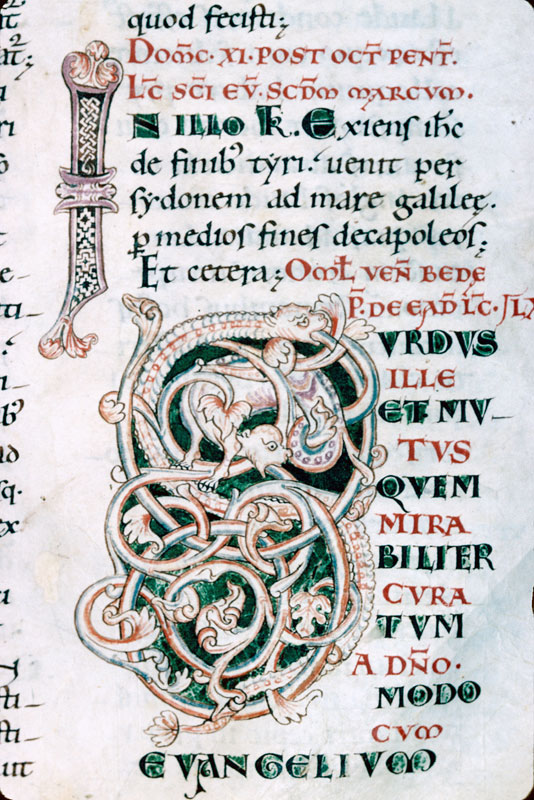 quod fecisti;
DOMC̄. XI. POST OCT̄ PENT̄.
LC̄ SC̄I EV̄. SCDM̄ MARCUM.
IN ILLO T̄R. Exiens ih̄c
de finib⁹ tyri. uenit per
sydonem ad mare galileę.
p̱ medios fines decapoleos;
Et cetera; OML̄ VEN̄ BEDE
P̄. DE EAD̄ LC̄.
SURDUS
ILLE
ET MU-
TUS
QUEM
MIRA
BILITER
CURA
TUM
A DN̄O.
MODO
CUM
EVANGELIUM